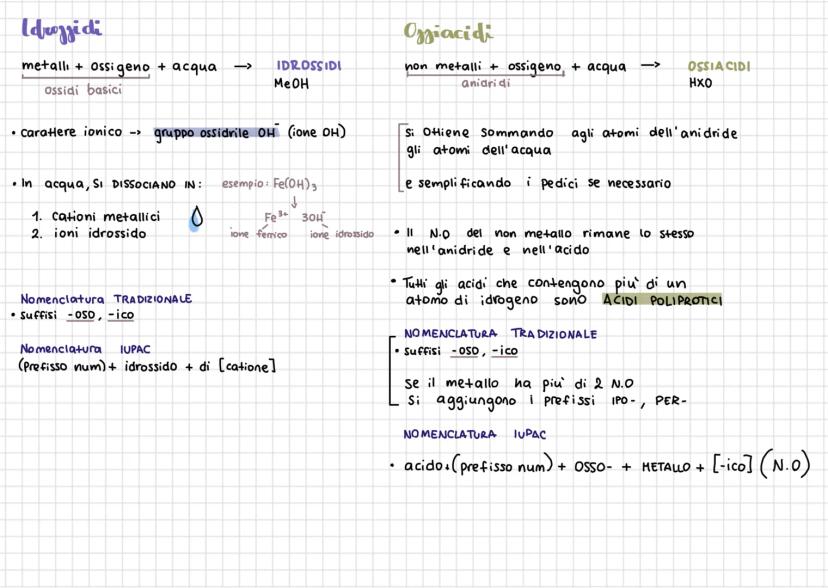 Idrossidi
metalli + ossigeno + acqua → IDROSSIDI
ossidi basici
MeOH
• carattere ionico -> gruppo ossidrile OH⁻ (ione OH)
• In acqua, SI DISSOCIANO IN:
1. cationi metallici
2. ioni idrossido
esempio: Fe(OH)₃
↓
Fe³⁺ 3OH⁻
ione ferrico ione idrossido
Nomenclatura TRADIZIONALE
• suffisi -OSO, -ico
Nomenclatura IUPAC
(Prefisso num) + idrossido + di [catione]
Ossiacidi
non metalli + ossigeno + acqua → OSSIACIDI
anidridi
HXO
Si ottiene sommando agli atomi dell'anidride
gli atomi dell'acqua
e semplificando i pedici se necessario
• Il N.O del non metallo rimane lo stesso
nell'anidride e nell'acido
• Tutti gli acidi che contengono piu' di un
atomo di idrogeno sono ACIDI POLIPROTICI
NOMENCLATURA TRADIZIONALE
• suffisi -OSO, -ico
Se il metallo ha piu' di 2 N.O
Si aggiungono i prefissi IPO-, PER-
NOMENCLATURA IUPAC
• acido+(prefisso num) + OSSO- + METALLO + [-ico] (N.O)